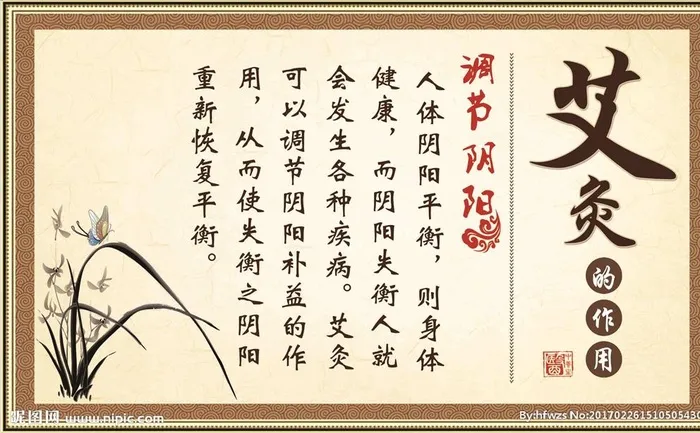 艾灸
的作用
调节阴阳
人体阴阳平衡，则身体
健康，而阴阳失衡人就
会发生各种疾病。艾灸
可以调节阴阳补益的作
用，从而使失衡之阴阳
重新恢复平衡。
昵图网 www.nipic.com
By:hfwzs No:201702261510505430